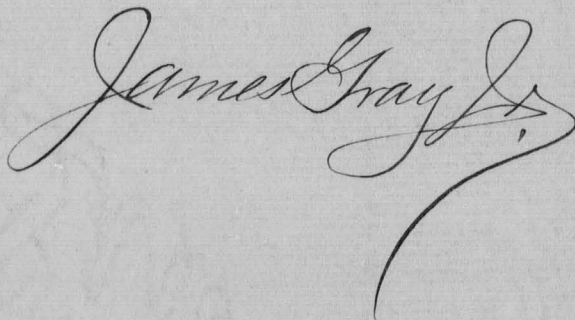 James Gray Jr.